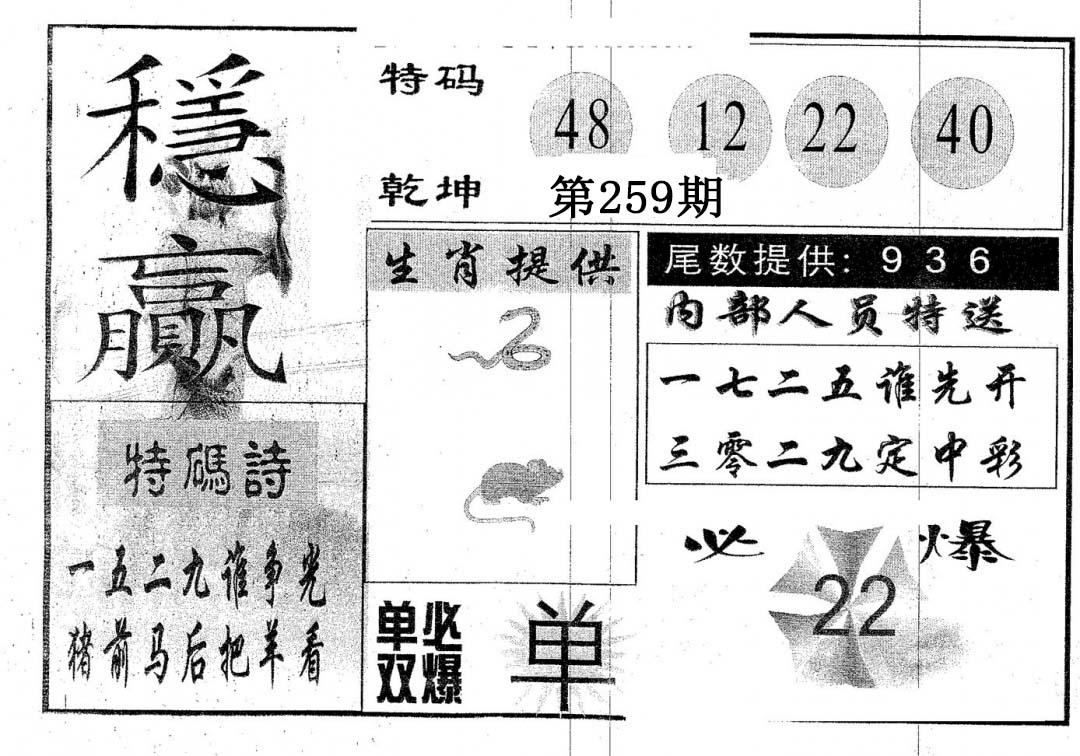 穩
贏
特码
48 12 22 40
乾坤
第259期
生肖提供
尾数提供: 9 3 6
内部人员特送
一七二五谁先开
三零二九定中彩
特碼詩
一五二九谁争光
猪前马后把羊看
必爆
22
单必
双爆
单